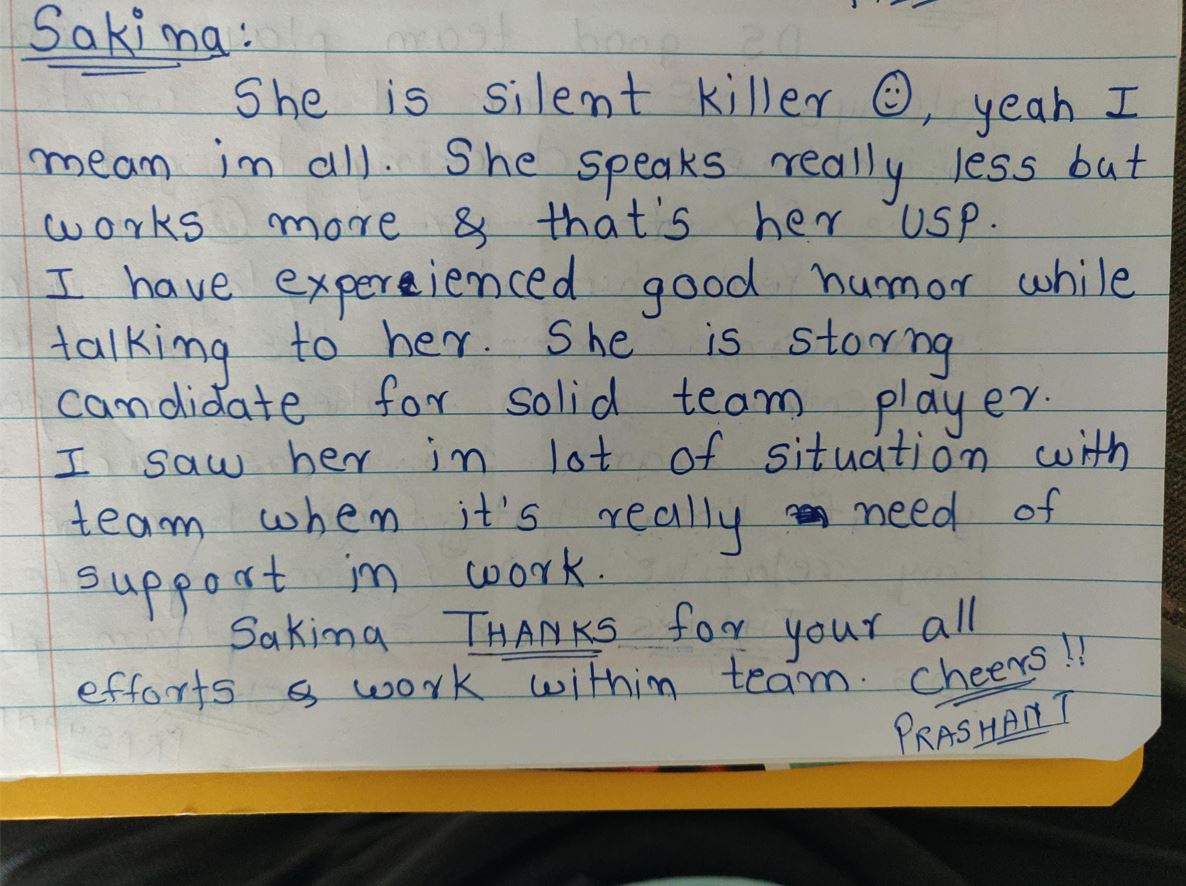 Sakina:
She is silent killer ☺, yeah I
mean in all. She speaks really less but
works more & that's her USP.
I have experienced good humor while
talking to her. She is storng
candidate for solid team player.
I saw her in lot of situation with
team when it's really need of
support in work.
Sakina THANKS for your all
efforts & work within team. cheers!!
PRASHANT